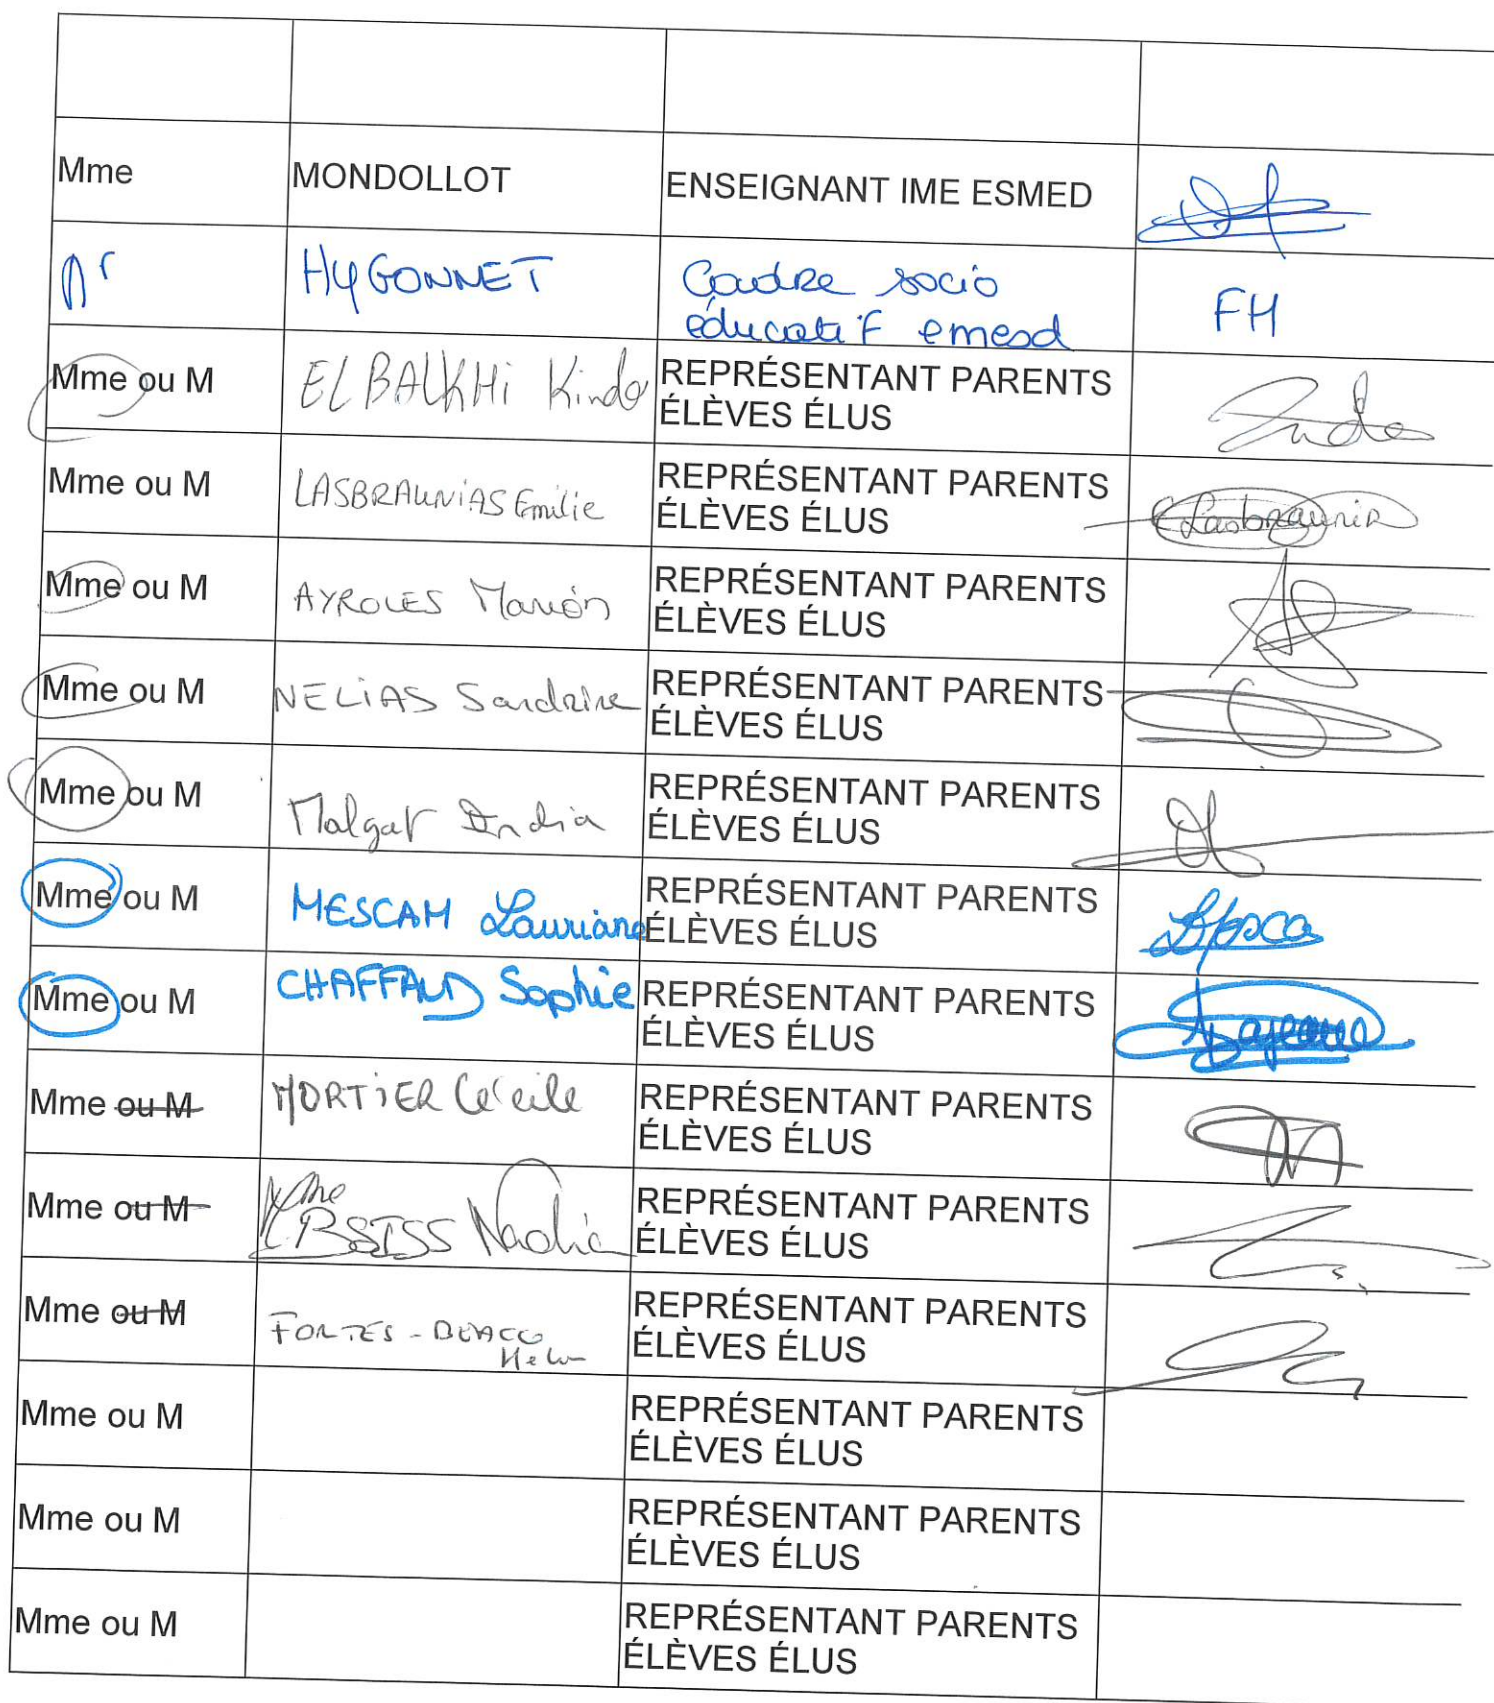 Mme MONDOLLOT ENSEIGNANT IME ESMED
Mr HYGONNET Cadre socio
éducatif emesd FH
Mme ou M EL BALKHI Kinda REPRÉSENTANT PARENTS
ÉLÈVES ÉLUS
Mme ou M LASBRAUNIAS Emilie REPRÉSENTANT PARENTS
ÉLÈVES ÉLUS
Mme ou M AYROLES Marion REPRÉSENTANT PARENTS
ÉLÈVES ÉLUS
Mme ou M NELIAS Sandrine REPRÉSENTANT PARENTS
ÉLÈVES ÉLUS
Mme ou M Malgat India REPRÉSENTANT PARENTS
ÉLÈVES ÉLUS
Mme ou M MESCAM Lauriane REPRÉSENTANT PARENTS
ÉLÈVES ÉLUS
Mme ou M CHAFFAUD Sophie REPRÉSENTANT PARENTS
ÉLÈVES ÉLUS
Mme ou M MORTIER Cécile REPRÉSENTANT PARENTS
ÉLÈVES ÉLUS
Mme ou M Mme REPRÉSENTANT PARENTS
BSISS Nadia ÉLÈVES ÉLUS
Mme ou M FORTES - REPRÉSENTANT PARENTS
ÉLÈVES ÉLUS
Mme ou M REPRÉSENTANT PARENTS
ÉLÈVES ÉLUS
Mme ou M REPRÉSENTANT PARENTS
ÉLÈVES ÉLUS
Mme ou M REPRÉSENTANT PARENTS
ÉLÈVES ÉLUS